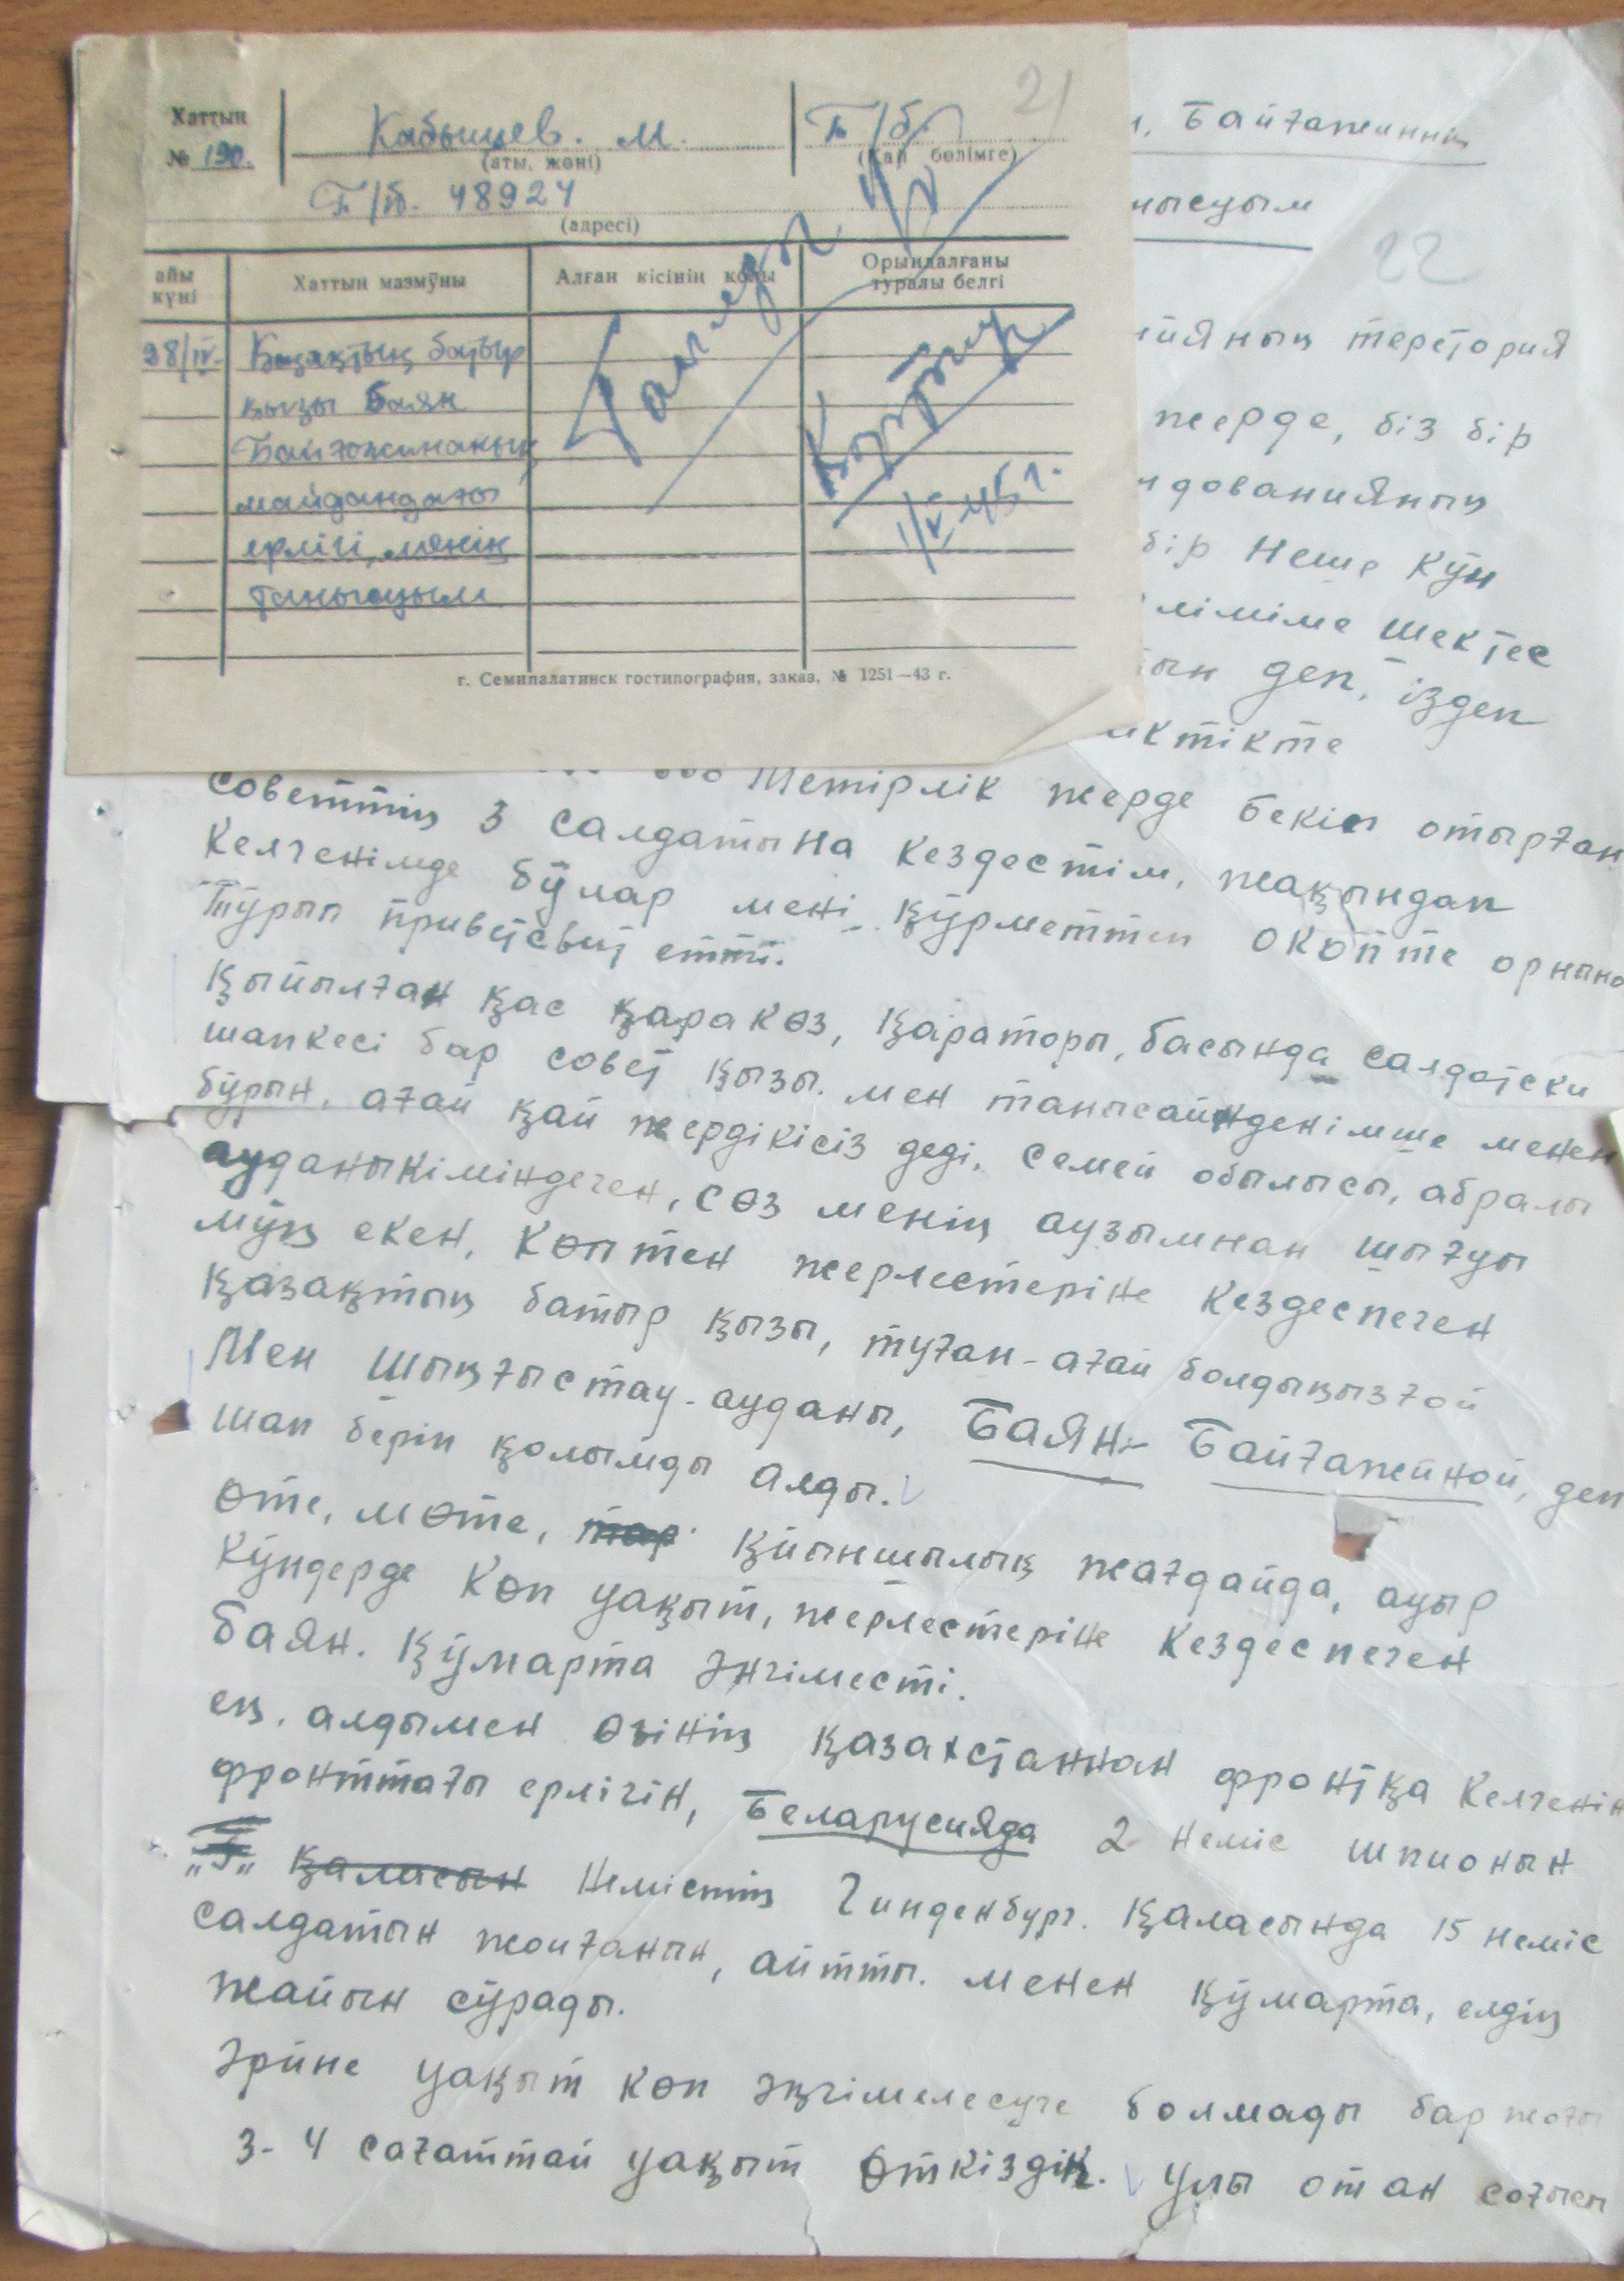 21
Хаттың
№ 190.
Кабышев. М.
(аты, жөні)
П/б.
(Қай бөлімге)
П/б. 48924
(адресі)
айы күні
Хаттың мазмұны
Алған кісінің қолы
Орындалғаны туралы белгі
28/IV.
Қазақтың батыр
қызы Баян
Байғожинаның
майдандағы
ерлігі, менің
танысуым
г. Семипалатинск гостипография, заказ, № 1251—43 г.
Байғапеиннің
нысуым
22
територия
жерде, біз бір
бір Неше Күн
шектес
деп, іздеп
Метірлік жерде бекіп отырған
советтің 3 салдатына кездестім, жақындап
Келгенімде бұлар мені құрметтеп окопте орнына
Тұрып приветсвит етті.
Қыйылған қас қаракөз, қараторы, басында салдатски
шапкесі бар совет қызы. мен танысайнденімше менен
бұрын, ағай қай жердікісіз деді, семей обылысы, абралы
ауданыкіміндеген, сөз менің аузымнан шығуы
мұң екен, көптен жерлестеріне кездеспеген
Қазақтың батыр қызы, туған-ағай болдыңызғой
Мен Шыңғыстау-ауданы, Баян-Байғапейной, деп
шап беріп қолымды алды.
өте, мөте, қйыншылық жағдайда, ауыр
Күндерде көп уақыт, жерлестеріне кездеспеген
Баян. Құмарта әнгіместі.
ең. алдымен өзінің қазахстаннан фронтқа келгенін
фронттағы ерлігін, Беларусияда 2 неміс шпионын
қаласын Немістің Гинденбург. қаласында 15 неміс
салдатын жойғанын, айтты. менен құмарта, елдің
жайын сұрады.
Әрйне уақыт көп әңгімелесуге болмады бар жоғы
3-4 сағаттай уақыт өткіздік. Ұлы отан соғысы